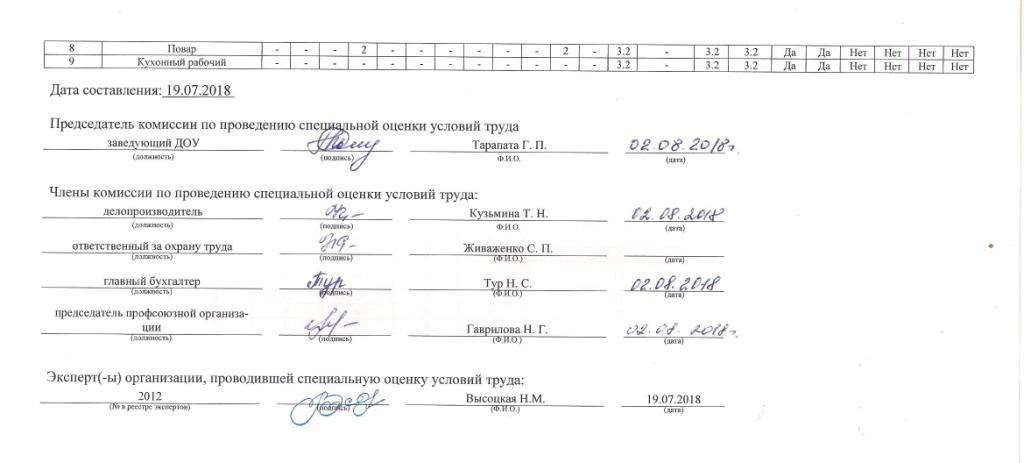 8 Повар - - - 2 - - - - - - 2 - 3.2 - 3.2 3.2 Да Да Нет Нет Нет Нет
9 Кухонный рабочий - - - - - - - - - - - - 3.2 - 3.2 3.2 Да Да Нет Нет Нет Нет
Дата составления: 19.07.2018
Председатель комиссии по проведению специальной оценки условий труда
заведующий ДОУ Тарапата Г. П. 02.08.2018г.
(должность) (подпись) Ф.И.О. (дата)
Члены комиссии по проведению специальной оценки условий труда:
делопроизводитель Кузьмина Т. Н. 02.08.2018
(должность) (подпись) Ф.И.О. (дата)
ответственный за охрану труда Живаженко С. П.
(должность) (подпись) (Ф.И.О.) (дата)
главный бухгалтер Тур Тур Н. С. 02.08.2018
(должность) (подпись) (Ф.И.О.) (дата)
председатель профсоюзной организа-
ции Гаврилова Н. Г. 02.08.2018г.
(должность) (подпись) (Ф.И.О.) (дата)
Эксперт(-ы) организации, проводившей специальную оценку условий труда:
2012 Высоцкая Н.М. 19.07.2018
(№ в реестре экспертов) (подпись) (Ф.И.О.) (дата)